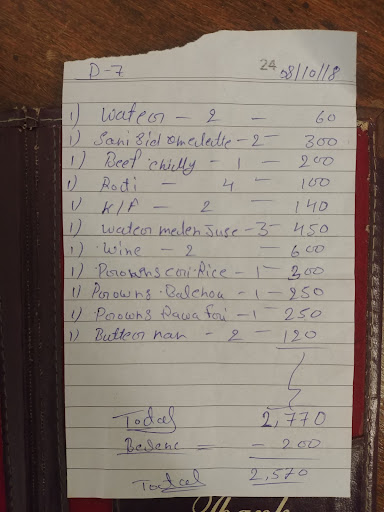 D-7 24 08/10/18
1) Water - 2 - 60
1) Sani Sid omeledte - 2 - 300
1) Beef chilly - 1 - 200
1) Roti - 4 - 100
1) K/P - 2 - 140
1) water melen Juse - 3 - 450
1) Wine - 2 - 600
1) Porowns cori Rice - 1 - 300
1) Porowns Balchou - 1 - 250
1) Porowns Rawa fori - 1 - 250
1) Butter nan - 2 - 120
Todal 2,770
Belenc = - 200
Toatcal 2,570
Thank